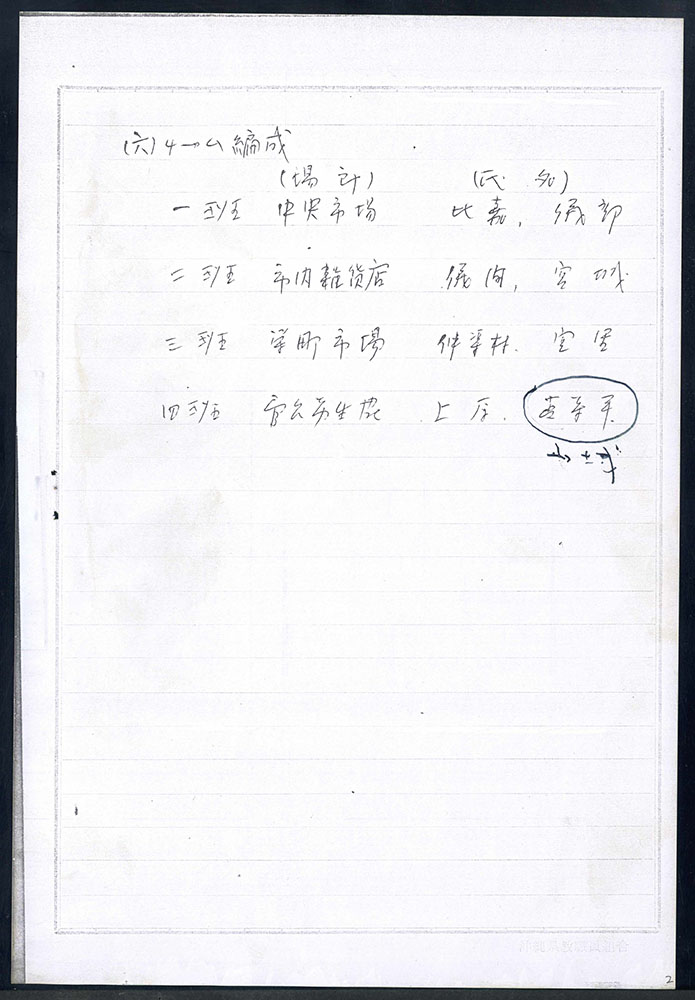 (六)チーム編成
(場所) (氏名)
一班 中央市場 比嘉, 儀部
二班 市内雑貨店 儀間, 宮城
三班 栄町市場 仲宗根. 宮里
四班 上原.
2